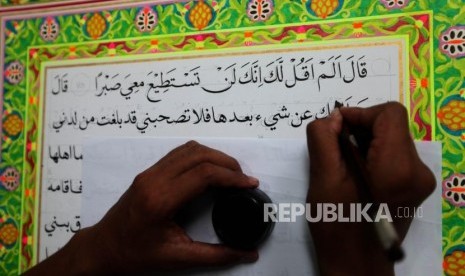 قَالَ اَلَمْ اَقُلْ لَّكَ اِنَّكَ لَنْ تَسْتَطِيْعَ مَعِيَ صَبْرًا قَالَ
ك عن شيء بعدها فلا تصحبني قد بلغت من لدني
اهلها
فاقامه
REPUBLIKA.CO.ID